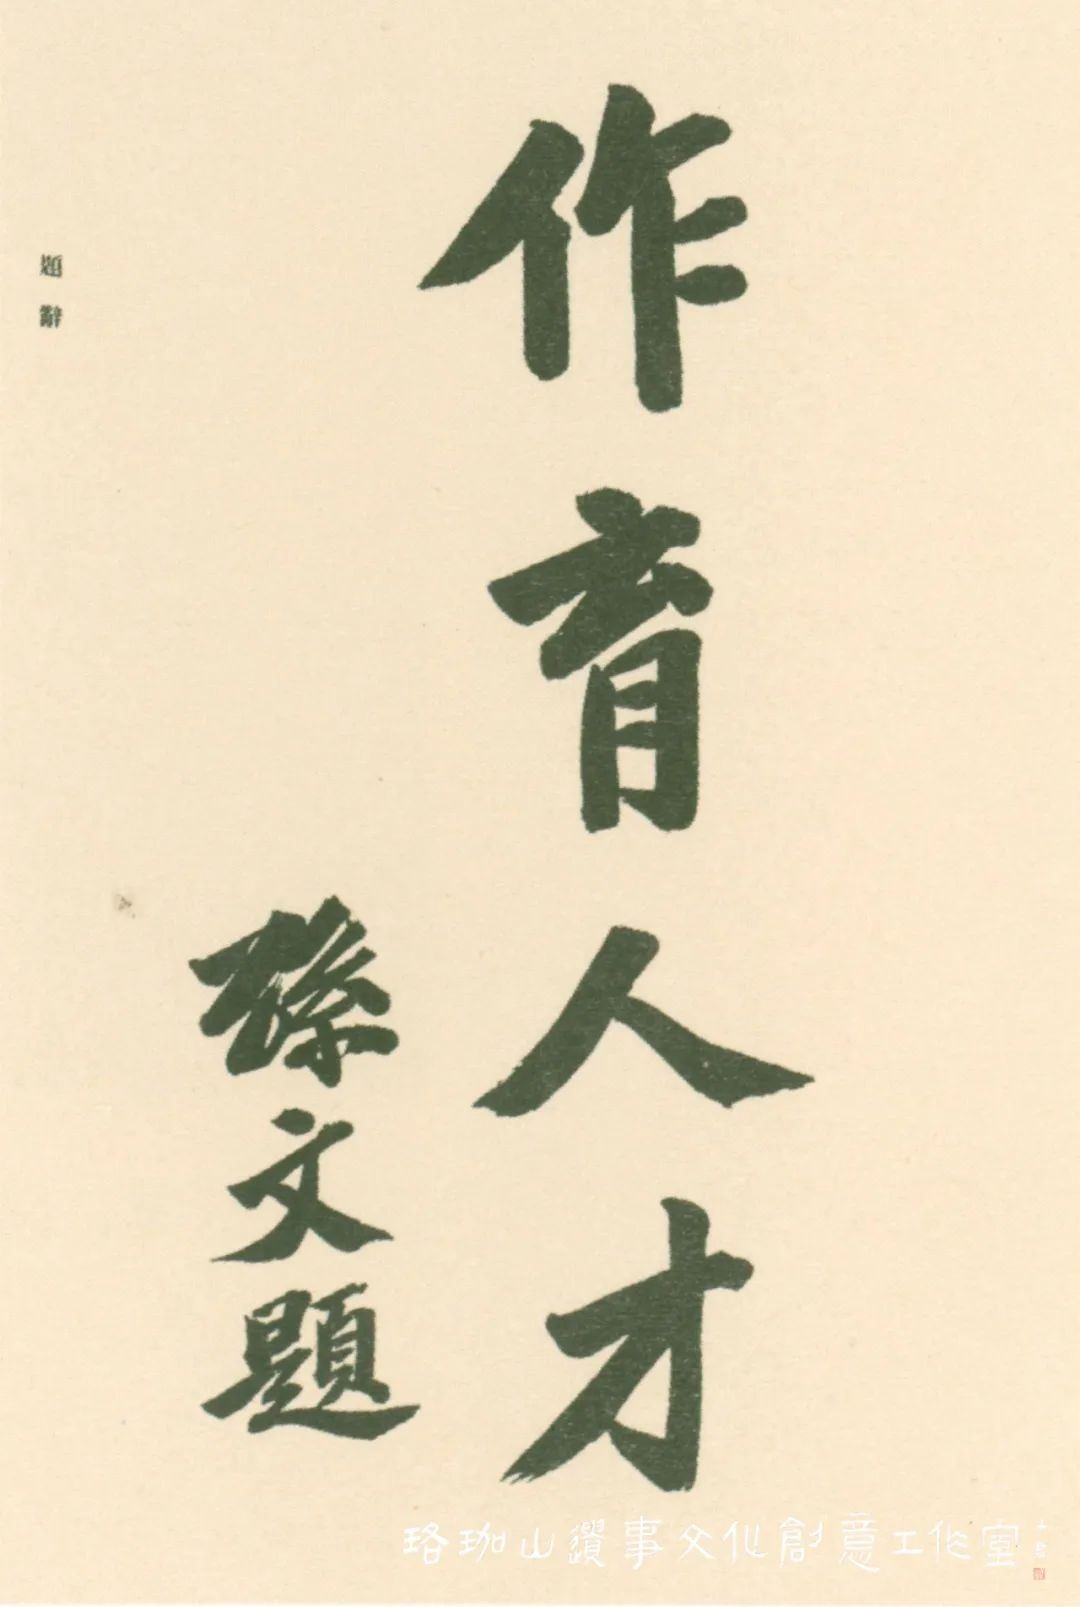 作育人才
孫文題
題辭
珞珈山讚事文化創意工作室